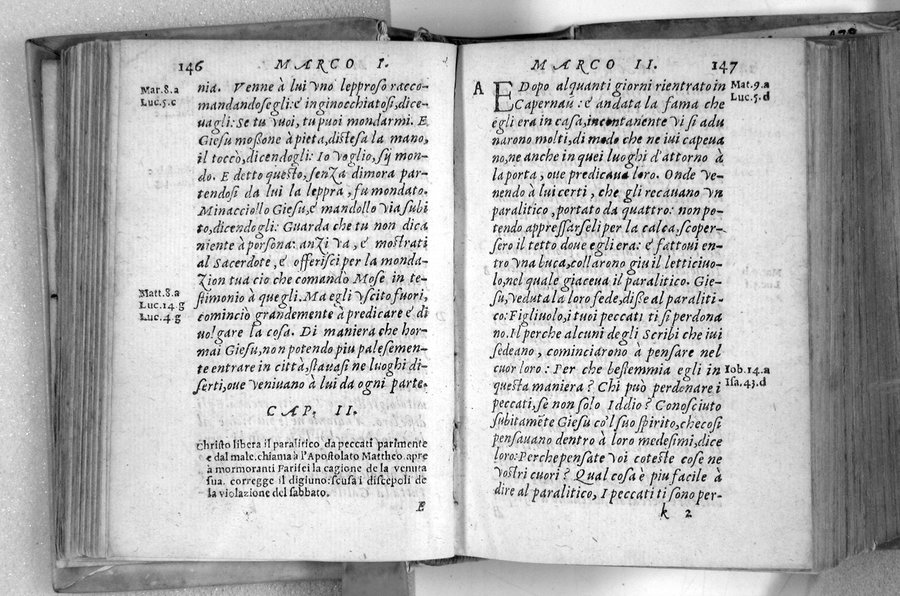 146 MARCO I.
Mar.8.a
Luc.5.c
nia. Venne à lui vno lepproso racco-
mandandosegli: e inginocchiatosi, dice-
uagli: Se tu vuoi, tu puoi mondarmi. E
Giesu moßone à pieta, distesa la mano,
il toccò, dicendogli: Io voglio, sÿ mon-
do. E detto questo, senza dimora par-
tendosi da lui la leppra, fu mondato.
Minacciollo Giesu, e mandollo via subi
to, dicendogli: Guarda che tu non dica
niente à persona: anzi va, e mostrati
al Sacerdote, e offerisci per la monda-
zion tua cio che comandò Mose in te-
stimonio à quegli. Ma egli vscito fuori,
cominciò grandemente à predicare e di
uolgare la cosa. Di maniera che hor-
mai Giesu, non potendo piu palesemen-
te entrare in città, stauasi ne luoghi di-
serti, oue veniuano à lui da ogni parte.
Matt.8.a
Luc.14.g
Luc.4.g
CAP. II.
Christo libera il paralitico da peccati parimente
e dal male. chiama à l'Apostolato Mattheo. apre
à mormoranti Farisei la cagione de la venuta
sua. corregge il digiuno: scusa i discepoli de
la violazione del sabbato.
E
MARCO II. 147
A
Mat.9.a
Luc.5.d
E Dopo alquanti giorni rientrato in
Capernaū: e andata la fama che
egli era in casa, incontanente vi si adu
narono molti, di modo che ne iui capeua
no, ne anche in quei luoghi d'attorno à
la porta, oue predicaua loro. Onde ve-
nendo à lui certi, che gli recauano vn
paralitico, portato da quattro: non po-
tendo appressarseli per la calca, scoper-
sero il tetto doue egli era: e fattoui en-
tro vna buca, collarono giu il letticiuo-
lo, nel quale giaceua il paralitico. Gie-
su, veduta la loro fede, diße al paraliti-
co: Figliuolo, i tuoi peccati ti si perdona
no. Il perche alcuni degli Scribi che iui
sedeano, cominciarono à pensare nel
cuor loro: Per che bestemmia egli in
questa maniera? Chi può perdonare i
peccati, se non solo Iddio? Conosciuto
subitamēte Giesu co'l suo spirito, che cosi
pensauano dentro à loro medesimi, dice
loro: Perche pensate voi coteste cose ne
vostri cuori? Qual cosa è piu facile à
dire al paralitico, I peccati ti sono per-
Iob.14.a
Isa.43.d
k 2